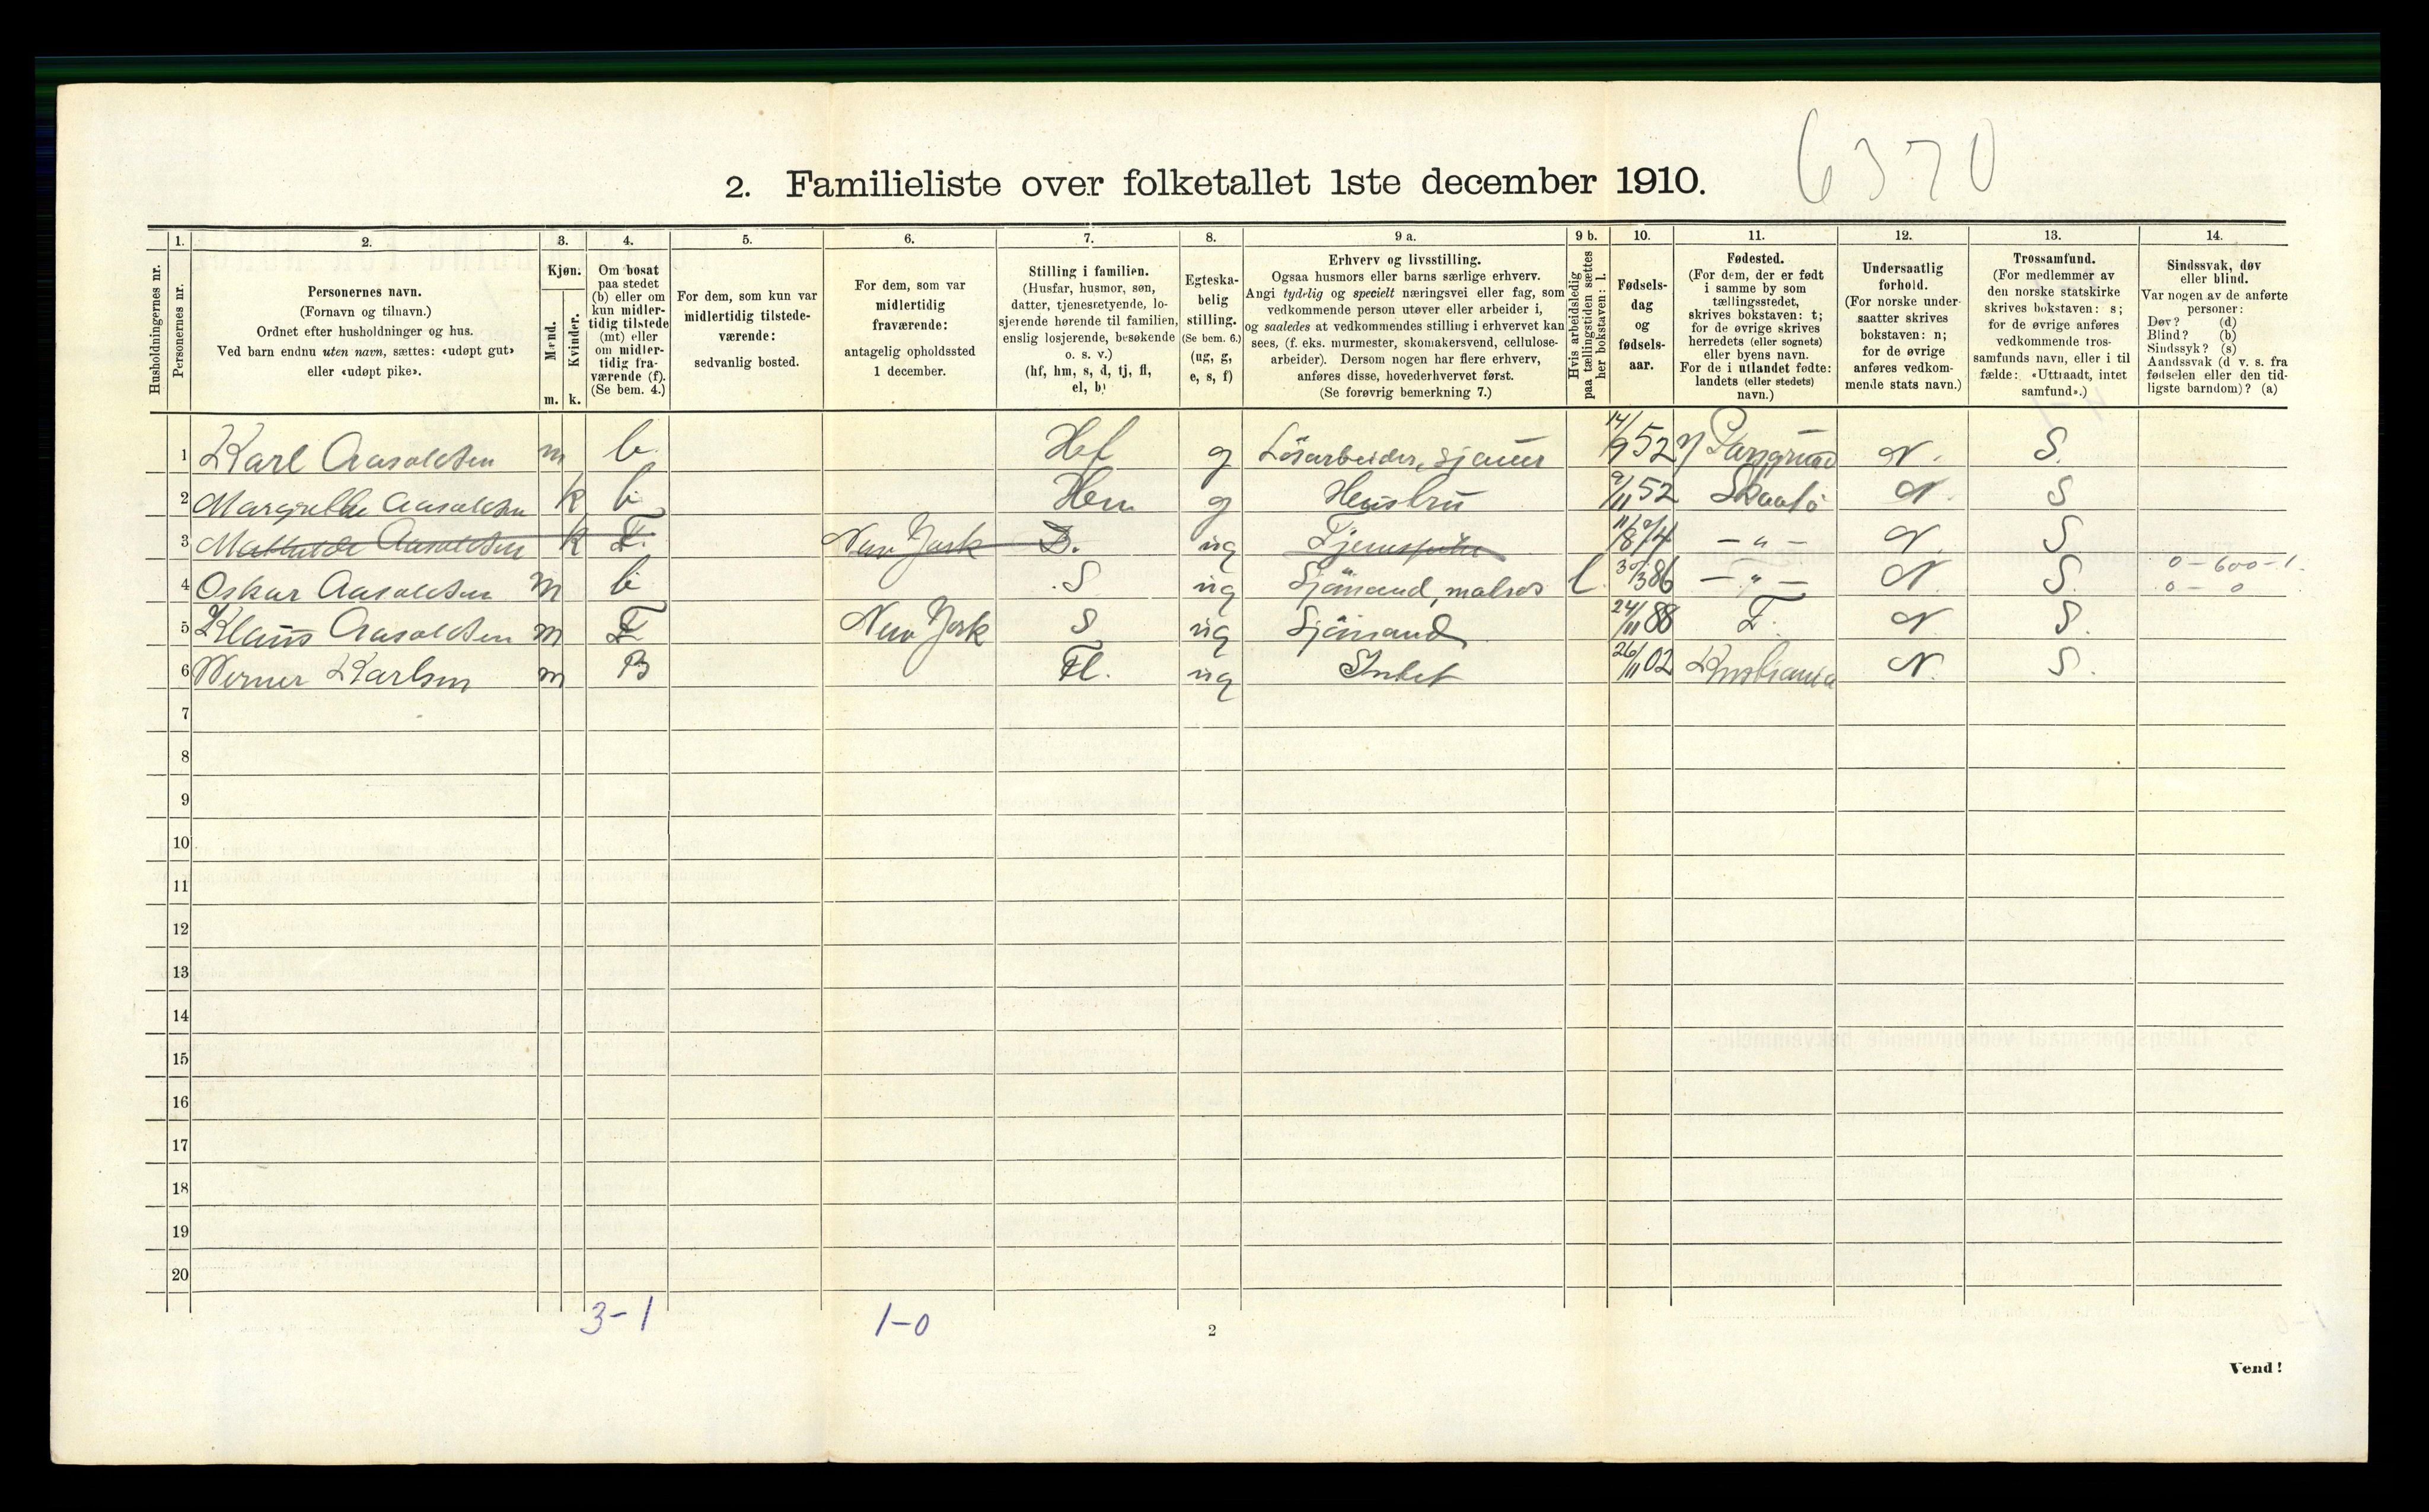 6370
2. Familieliste over folketallet 1ste december 1910.
1. 2. 3. 4. 5. 6. 7. 8. 9 a. 9 b. 10. 11. 12. 13. 14.
Husholdningernes nr.
Personernes nr.
Personernes navn.
(Fornavn og tilnavn.)
Ordnet efter husholdninger og hus.
Ved barn endnu uten navn, sættes: «udøpt gut»
eller «udøpt pike».
Kjøn.
Mænd.
Kvinder.
m. k.
Om bosat
paa stedet
(b) eller om
kun midler-
tidig tilstede
(mt) eller
om midler-
tidig fra-
værende (f).
(Se bem. 4.)
For dem, som kun var
midlertidig tilstede-
værende:
sedvanlig bosted.
For dem, som var
midlertidig
fraværende:
antagelig opholdssted
1 december.
Stilling i familien.
(Husfar, husmor, søn,
datter, tjenestetyende, lo-
sjerende hørende til familien,
enslig losjerende, besøkende
o. s. v.)
(hf, hm, s, d, tj, fl,
el, b)
Egteska-
belig
stilling.
(Se bem. 6.)
(ug, g,
e, s, f)
Erhverv og livsstilling.
Ogsaa husmors eller barns særlige erhverv.
Angi tydelig og specielt næringsvei eller fag, som
vedkommende person utøver eller arbeider i,
og saaledes at vedkommendes stilling i erhvervet kan
sees, (f. eks. murmester, skomakersvend, cellulose-
arbeider). Dersom nogen har flere erhverv,
anføres disse, hovederhvervet først.
(Se forøvrig bemerkning 7.)
Hvis arbeidsledig
paa tællingstiden sættes
her bokstaven: l.
Fødsels-
dag
og
fødsels-
aar.
Fødested.
(For dem, der er født
i samme by som
tællingsstedet,
skrives bokstaven: t;
for de øvrige skrives
herredets (eller sognets)
eller byens navn.
For de i utlandet fødte:
landets (eller stedets)
navn.)
Undersaatlig
forhold.
(For norske under-
saatter skrives
bokstaven: n;
for de øvrige
anføres vedkom-
mende stats navn.)
Trossamfund.
(For medlemmer av
den norske statskirke
skrives bokstaven: s;
for de øvrige anføres
vedkommende tros-
samfunds navn, eller i til-
fælde: «Uttraadt, intet
samfund».)
Sindssvak, døv
eller blind.
Var nogen av de anførte
personer:
Døv? (d)
Blind? (b)
Sindssyk? (s)
Aandssvak (d v. s. fra
fødselen eller den tid-
ligste barndom)? (a)
1 Karl Aasoldsen m b. Hf g Løsarbeider, sjauer 14/9 52 Porsgrund N. S.
2 Margrethe Aasoldsen k b Hm g Hustru 9/11 52 Skaatø N. S
3 Mathilde Aasoldsen k F. New York D. ug Tjenestpike 11/8 74 — " — N. S
4 Oskar Aasoldsen m b S ug Sjömand, matros l. 30/3 86 — " — N S. 0 - 600 - 1.
0 - 0
5 Klaus Aasoldsen m F New York S ug Sjömand 24/11 88 T. N S.
6 Werner Karlsen m B Fl. ug Intet 26/11 02 Kristiania N. S.
7
8
9
10
11
12
13
14
15
16
17
18
19
20
3-1 1-0
2
Vend!